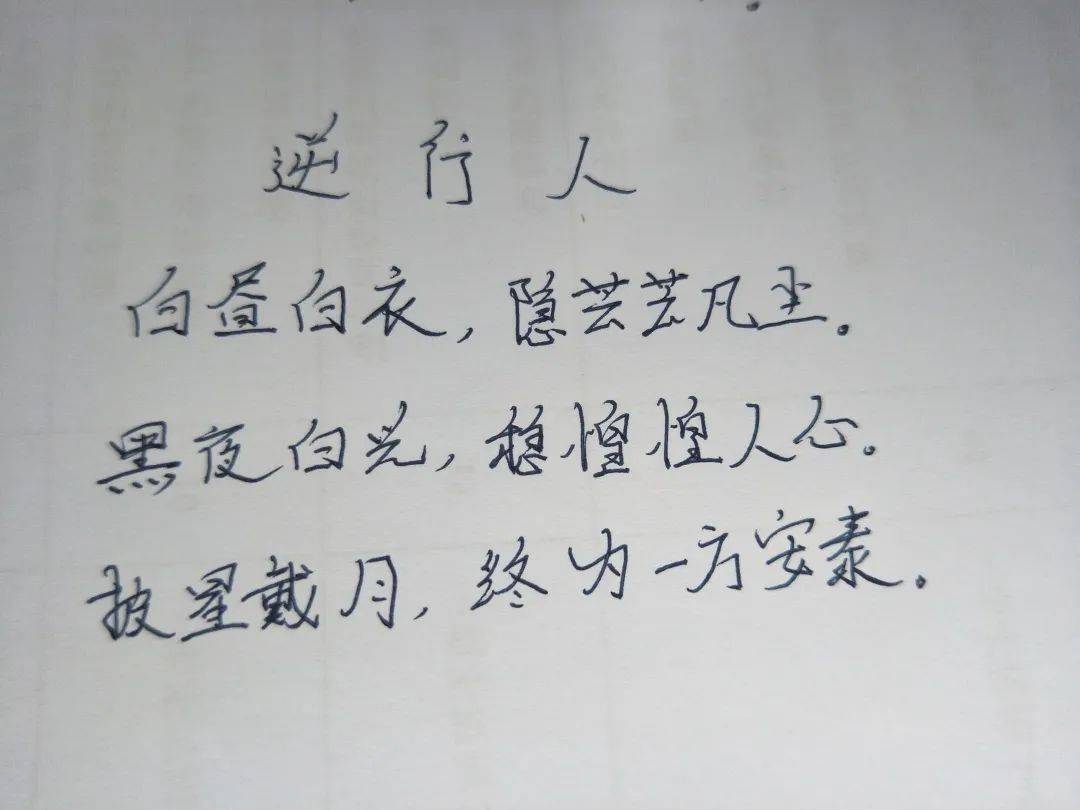 逆行人
白昼白衣，隐芸芸凡尘。
黑夜白光，稳惶惶人心。
披星戴月，终为一方安泰。